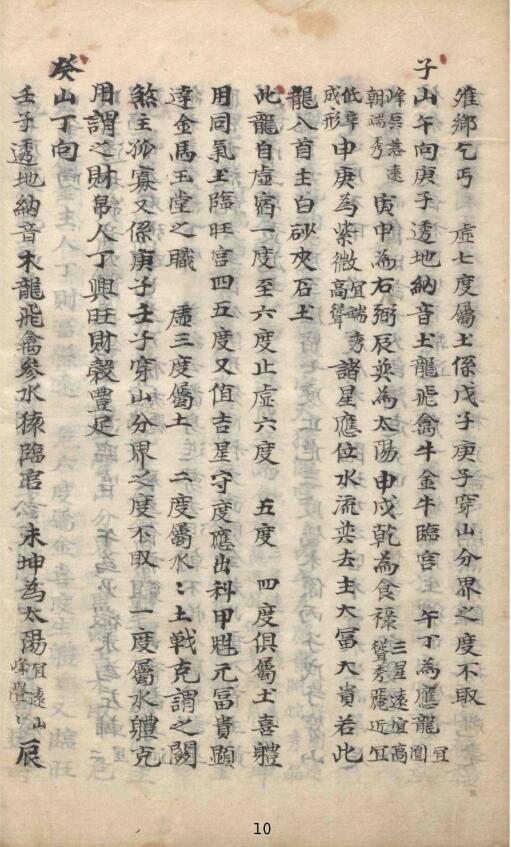 雄鄉乞丐 虛七度屬土係戊子庚子穿山分界之度不取
子山午向庚子透地納音土龍飛禽牛金牛臨宮 午丁為應龍宜圓
峰吳落遠朝端秀 寅甲為右弼辰巽為太陽申戌乾為食祿三星遠宜高聳秀麗近宜
低阜成形 申庚為紫微宜端秀高聳 諸星應位水流巽去主大富大貴若此
龍入首主白砂夾石土
此龍自虛宿一度至六度止虛六度 五度 四度俱屬土喜體
用同氣土臨旺宮四五度又值吉星守度應出科甲魁元富貴顯
達金馬玉堂之職 虛三度屬土 二度屬水：土戰克謂之關
煞主孤寡又係庚子壬子穿山分界之度不取 一度屬水體克
用謂之財帛人丁興旺財穀豐足
癸山丁向
壬子透地納音木龍飛禽參水猿臨宮 未坤為太陽宜遠山 辰
10